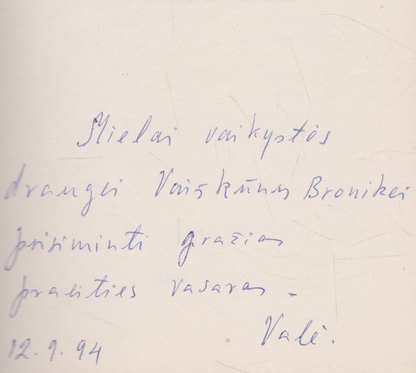 Mielai vaikystės
draugei Vaiškūnų Bronikei
prisiminti gražias
praeities vasaras -
Valė.
12.9.94